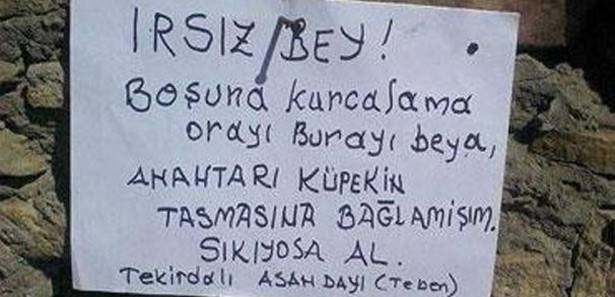 IRSIZ BEY!
Boşuna kurcalama
orayı Burayı beya,
AHAHTARI KÜPEKİN
TASMASINA BAĞLAMİŞIM.
SIKIYOSA AL.
Tekirdalı ASAH DAYI (Teben)